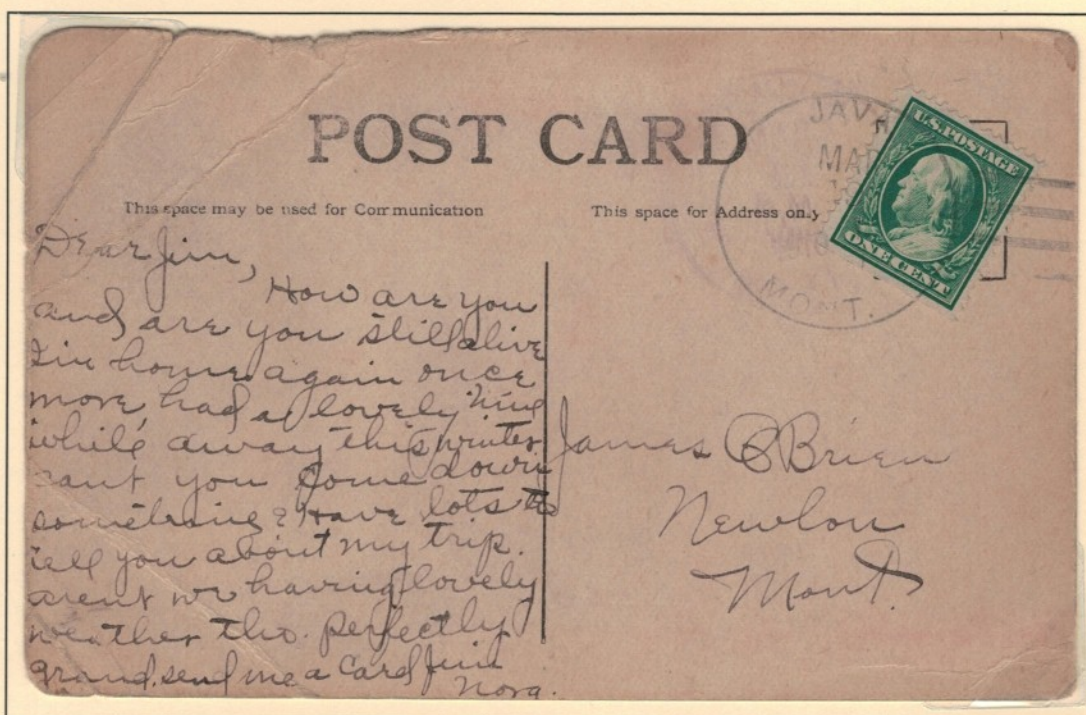 POST CARD
This space may be used for Communication
This space for Address only
JAVA
MAR
MONT.
U.S. POSTAGE
ONE CENT
Dear Jim,
How are you
and are you still alive
I'm home again once
more had a lovely time
while away this winter
cant you come down
sometime & have lots to
tell you about my trip.
arent we having lovely
weather tho. perfectly
grand. send me a card Jim
Nora.
James O'Brien
Newlon
Mont.